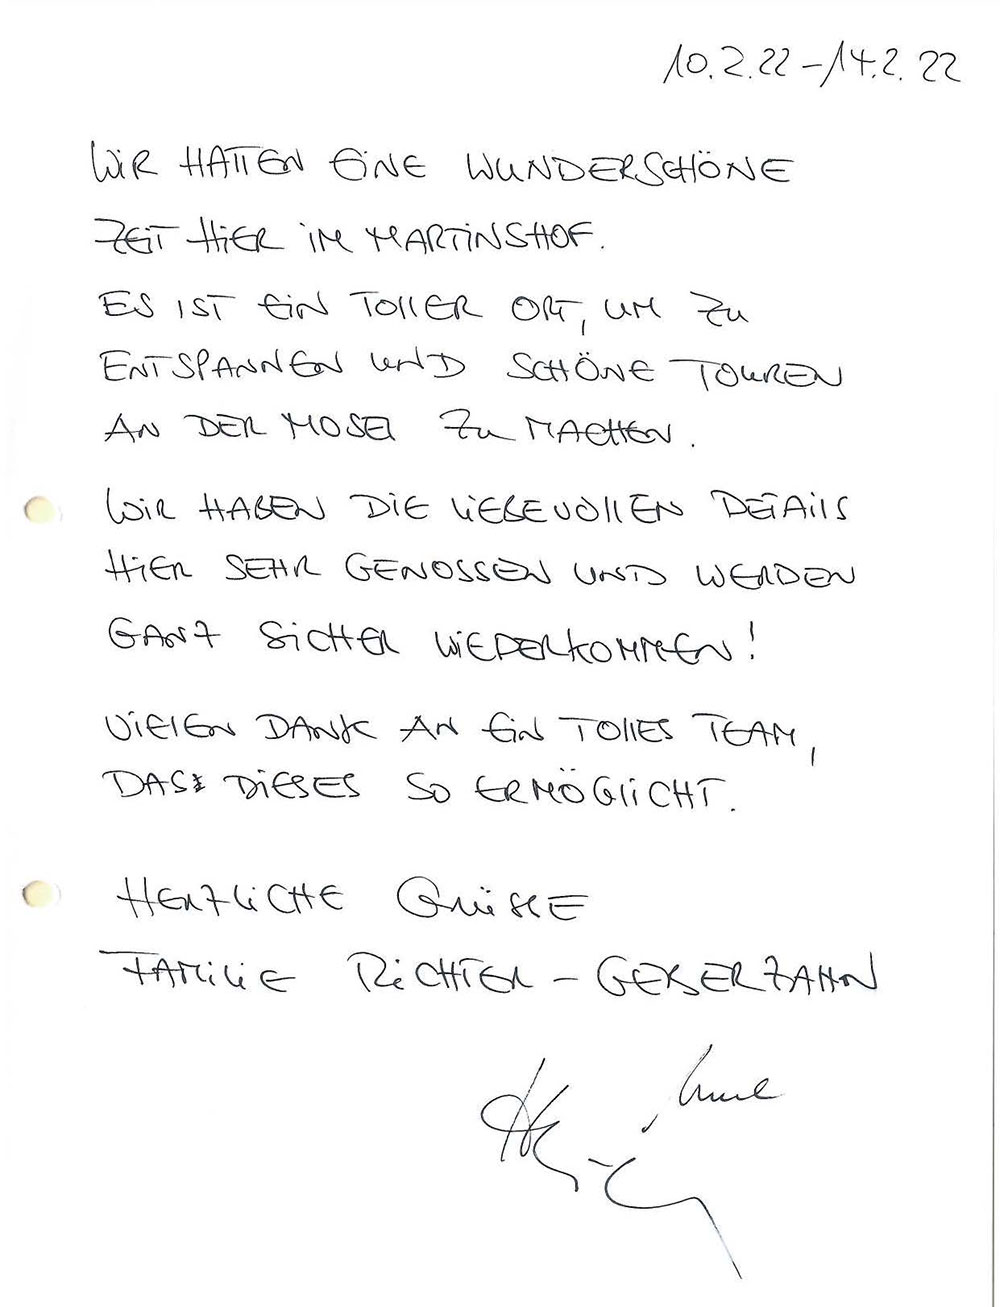 10.2.22 – 14.2.22
WIR HATTEN EINE WUNDERSCHÖNE
ZEIT HIER IM MARTINSHOF.
ES IST EIN TOLLER ORT, UM ZU
ENTSPANNEN UND SCHÖNE TOUREN
AN DER MOSEL ZU MACHEN.
WIR HABEN DIE LIEBEVOLLEN DETAILS
HIER SEHR GENOSSEN UND WERDEN
GANZ SICHER WIEDERKOMMEN!
VIELEN DANK AN EIN TOLLES TEAM,
DAS DIESES SO ERMÖGLICHT.
HERZLICHE GRÜSSE
FAMILIE RICHTER – GEBERZAHN